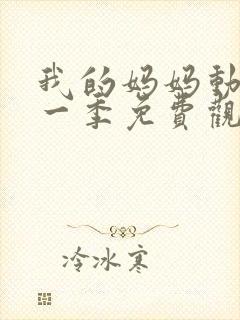 我的妈妈動
一季免費觀
冷冰寒